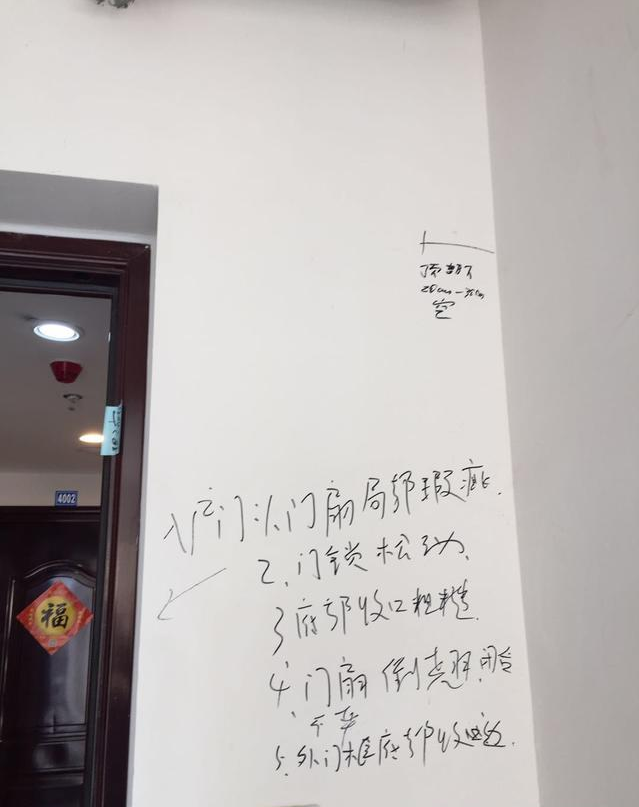 20cm-30cm
空
4002
福
入户门1.门扇局部瑕疵.
2.门锁松动.
3底部收口粗糙.
4.门扇倒翘 闭合
不
5.外门框底部收边.